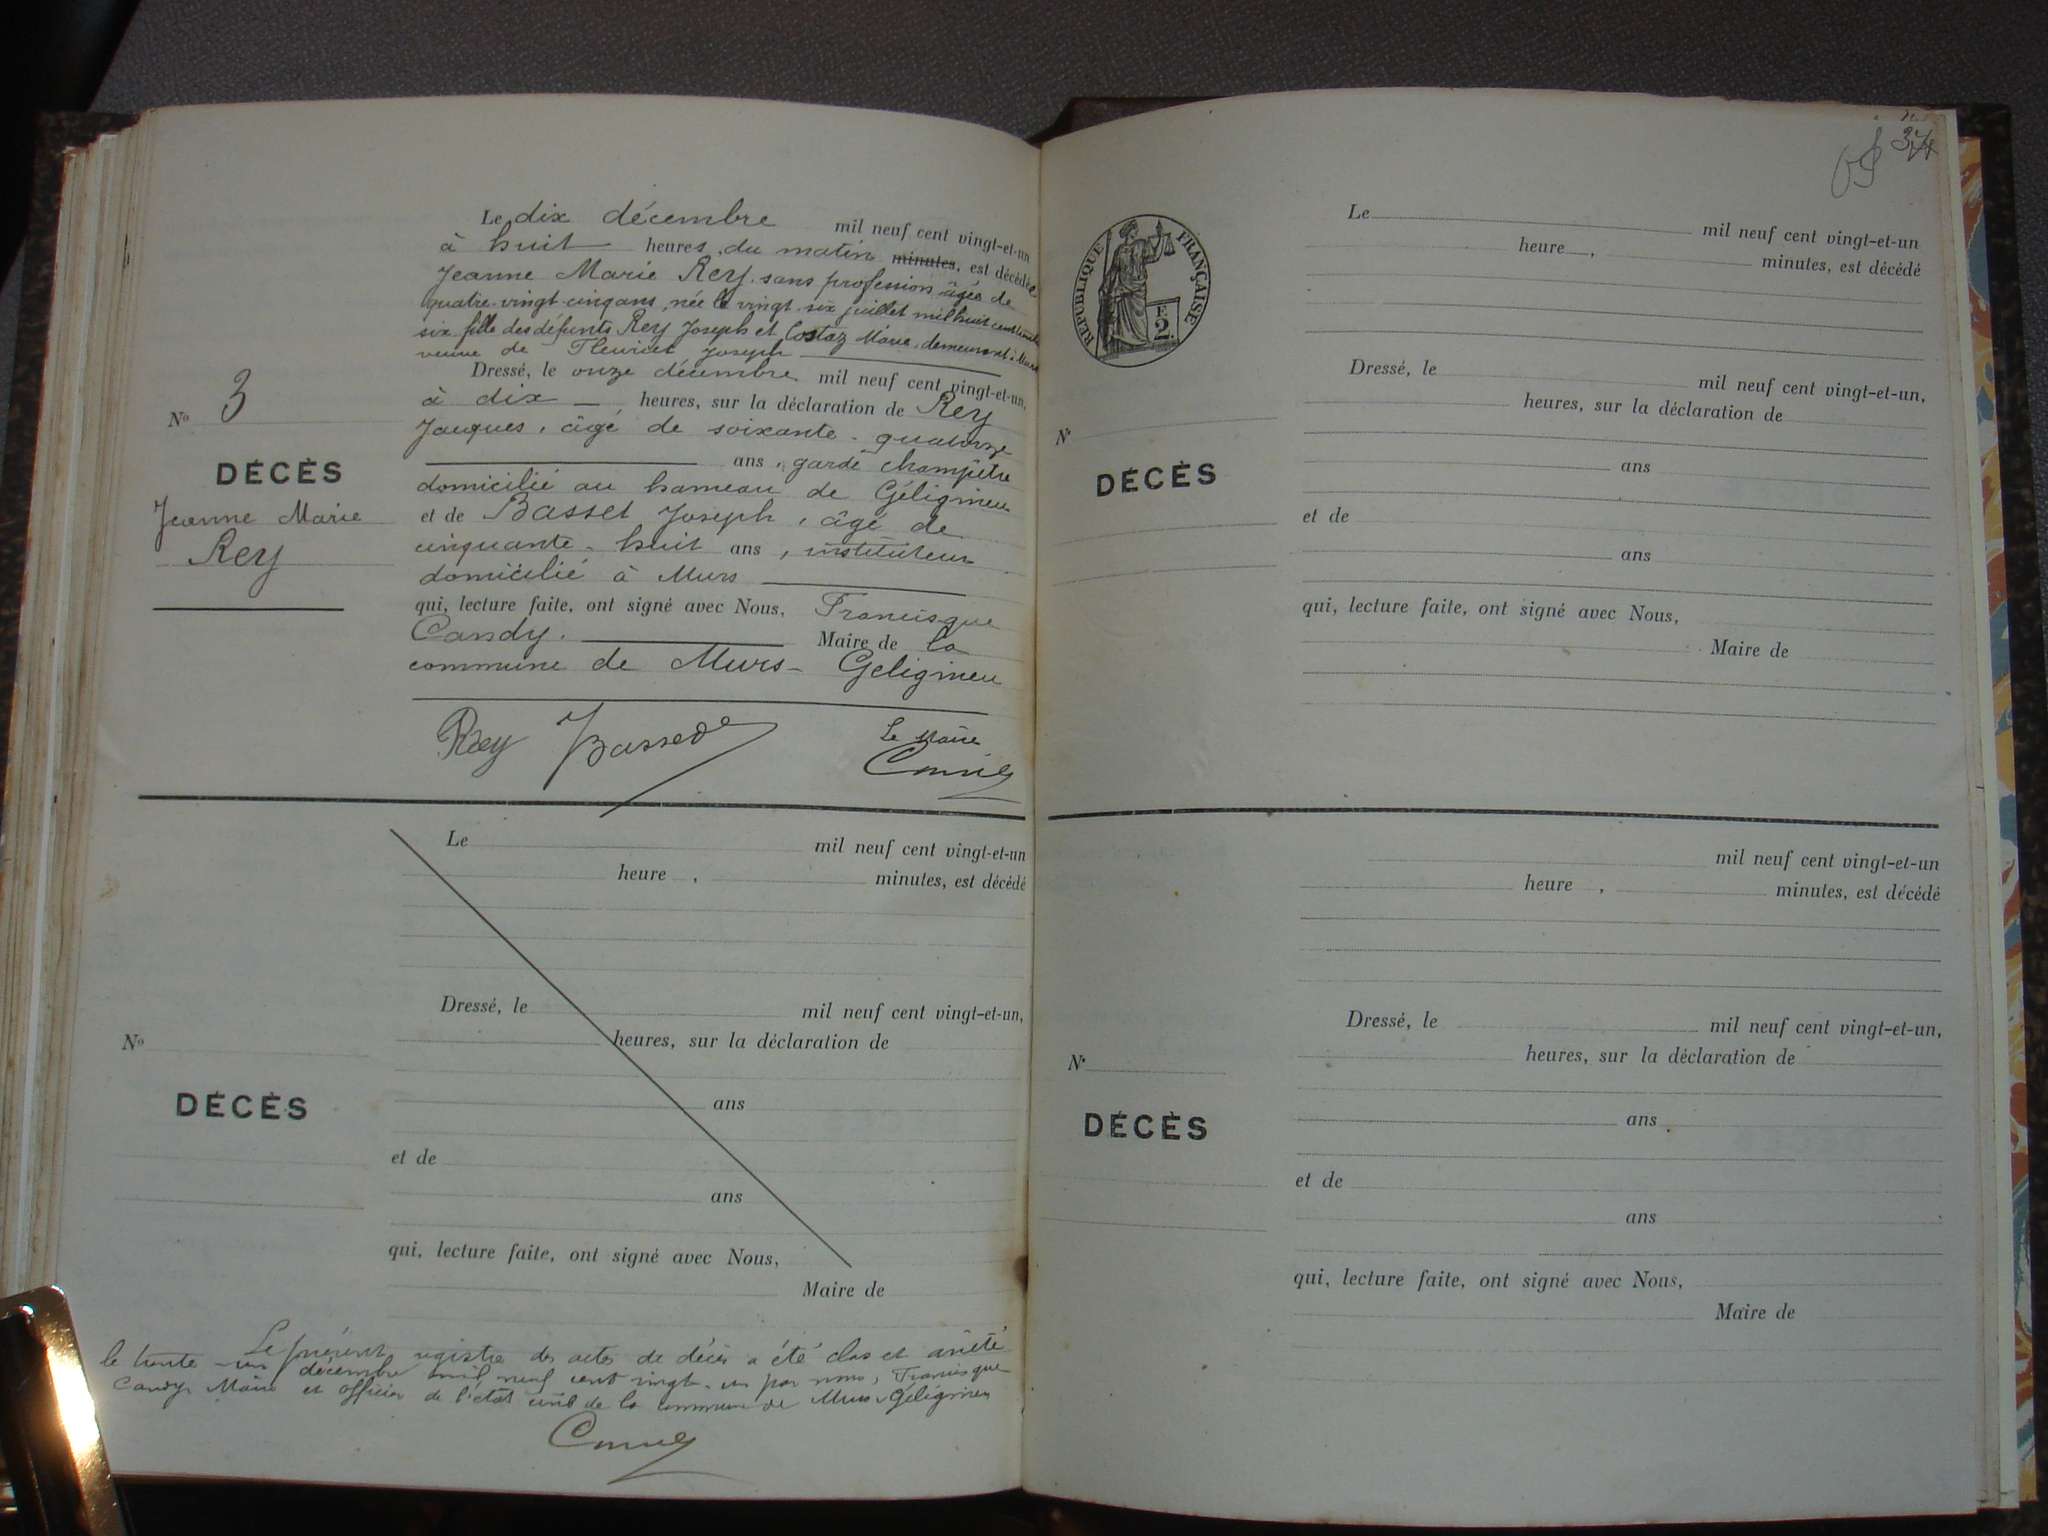 Le dix décembre mil neuf cent vingt-et-un
à huit heures, du matin minutes, est décédée
Jeanne Marie Rey, sans profession âgée de
quatre-vingt-cinq ans, née le vingt-six juillet mil huit cent
six fille des défunts Rey Joseph et Costaz Marie, demeurant à Murs
veuve de Joseph
Dressé, le onze décembre mil neuf cent vingt-et-un,
à dix heures, sur la déclaration de Rey
Jacques, âgé de soixante-quatorze
ans, garde champêtre
domicilié au hameau de Gélignieu
et de Basset Joseph, âgé de
cinquante-huit ans, instituteur
domicilié à Murs
qui, lecture faite, ont signé avec Nous, Francisque
Candy. Maire de la
commune de Murs-Gelignieu
Nº 3
DÉCÈS
Jeanne Marie
Rey
Rey JBasset Le Maire
Candy
Le mil neuf cent vingt-et-un
heure , minutes, est décédé
Dressé, le mil neuf cent vingt-et-un,
heures, sur la déclaration de
ans
et de
ans
qui, lecture faite, ont signé avec Nous,
Maire de
Nº
DÉCÈS
Le présent registre des actes de décès a été clos et arrêté
le trente-un décembre mil neuf cent vingt-un par nous, Francisque
Candy Maire et officier de l'état civil de la commune de Murs-Gélignieu
Candy
37
RÉPUBLIQUE FRANÇAISE
E
2
Le mil neuf cent vingt-et-un
heure , minutes, est décédé
Dressé, le mil neuf cent vingt-et-un,
heures, sur la déclaration de
ans
et de
ans
qui, lecture faite, ont signé avec Nous,
Maire de
Nº
DÉCÈS
mil neuf cent vingt-et-un
heure , minutes, est décédé
Dressé, le mil neuf cent vingt-et-un,
heures, sur la déclaration de
ans
et de
ans
qui, lecture faite, ont signé avec Nous,
Maire de
Nº
DÉCÈS